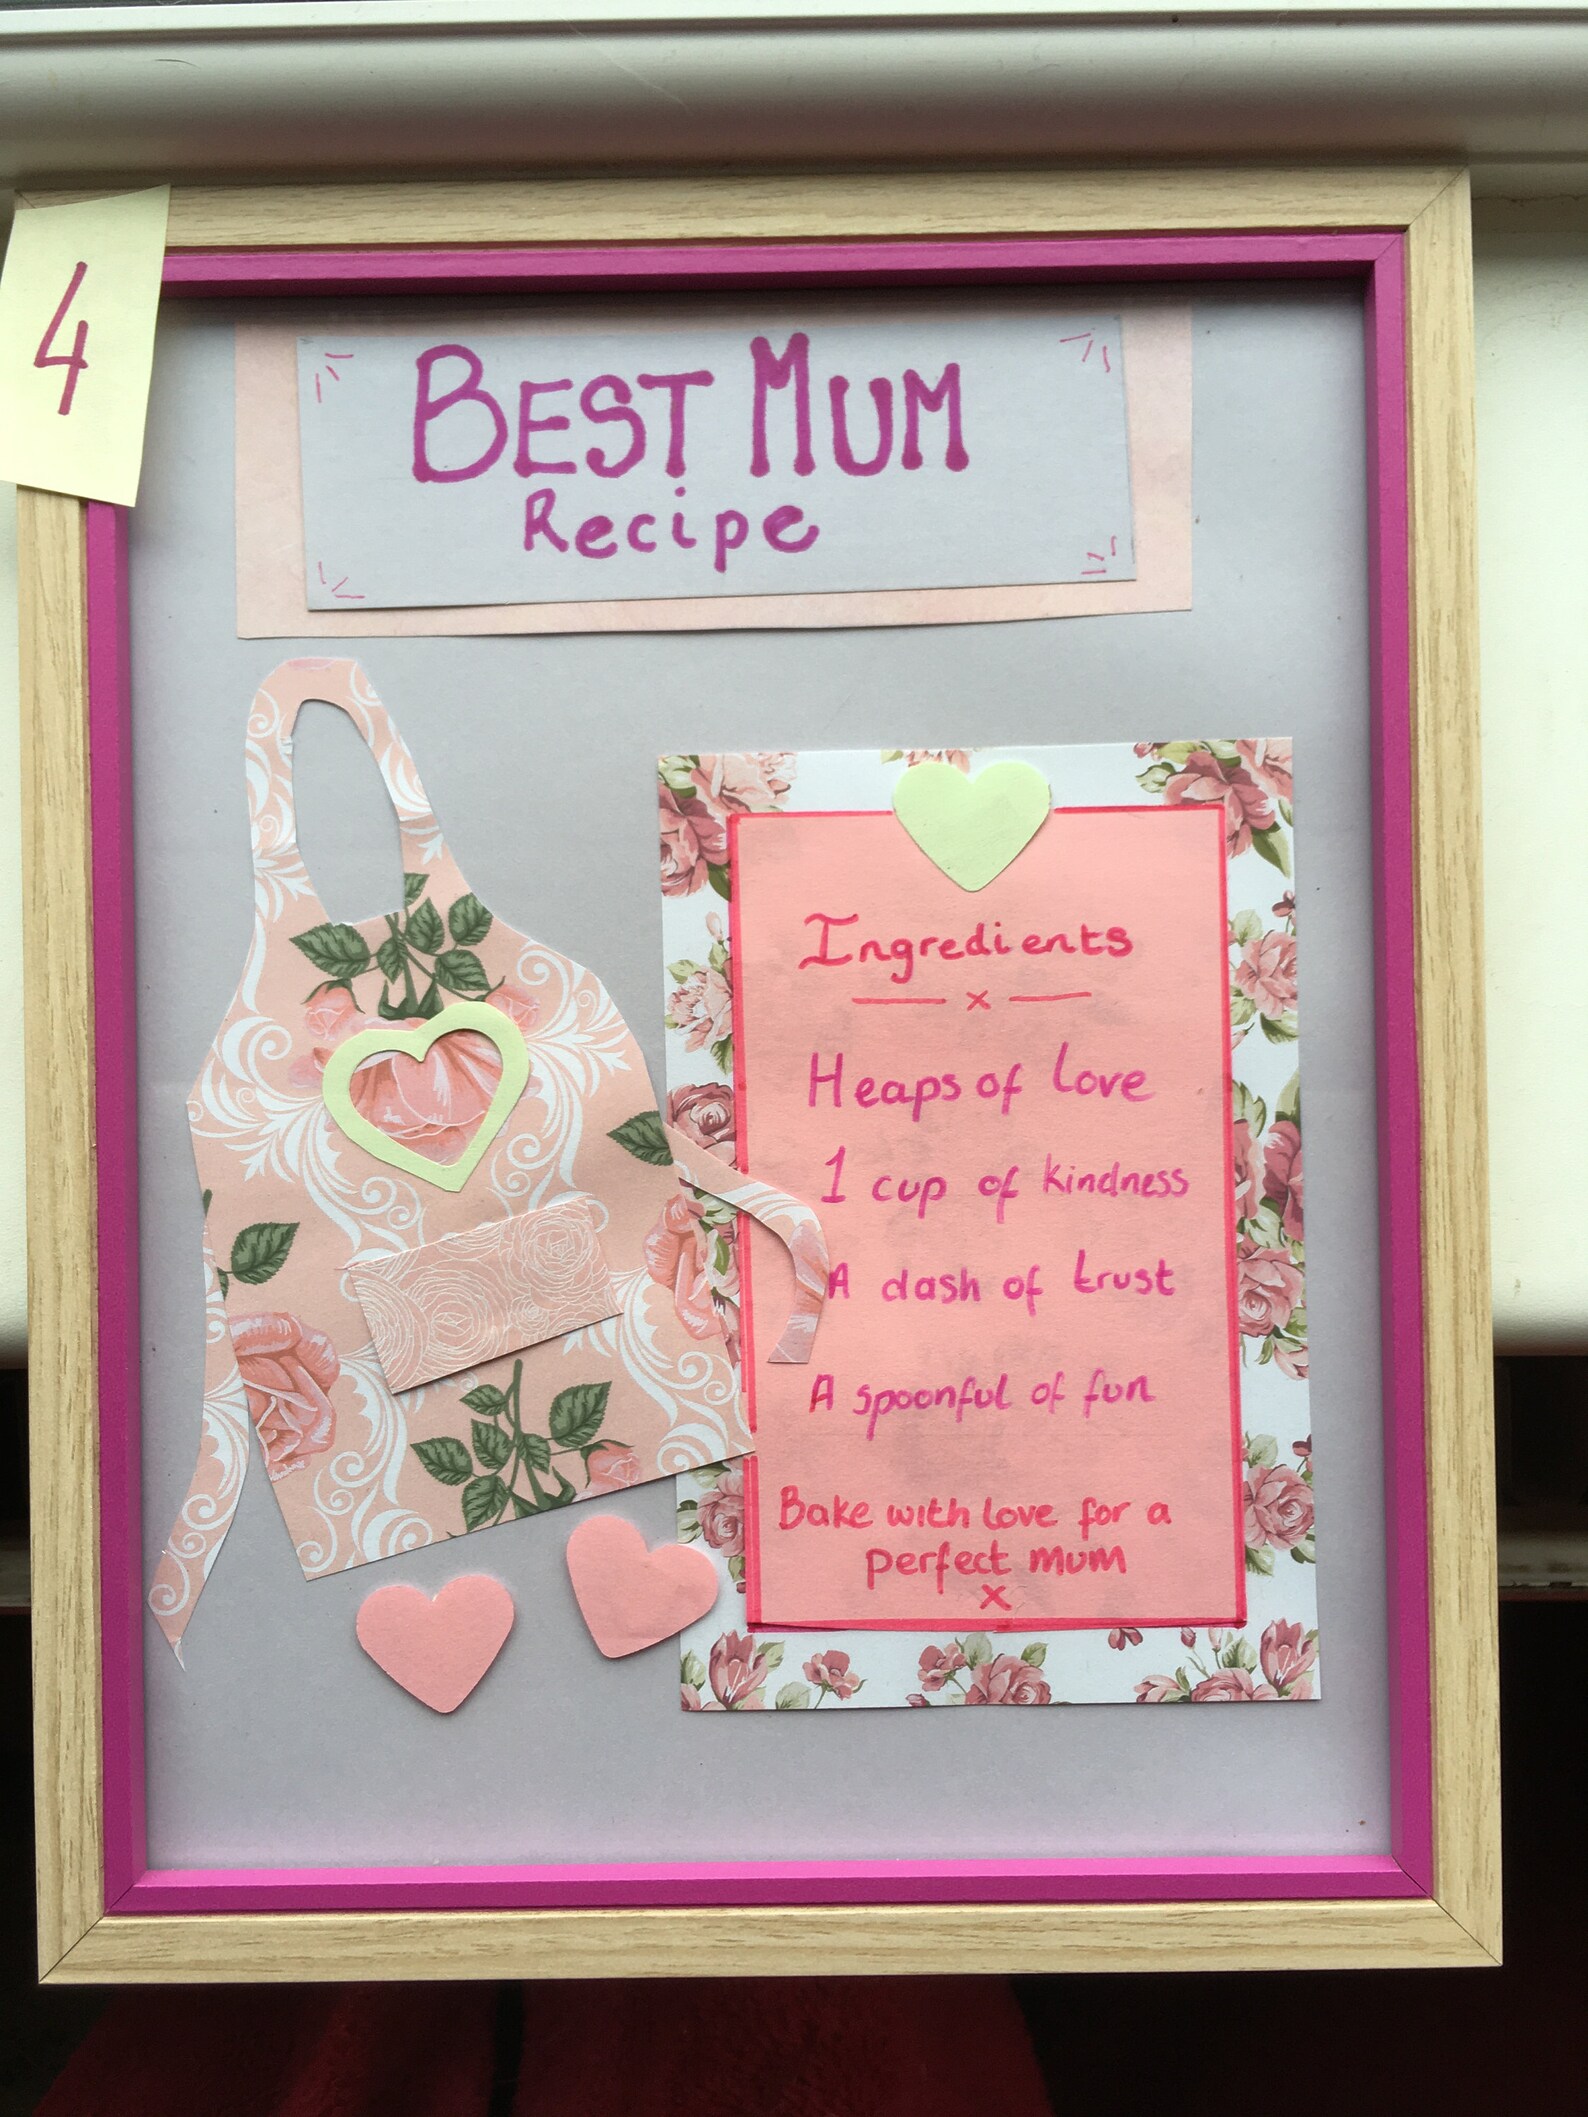 4
BEST MUM
Recipe
Ingredients
x
Heaps of love
1 cup of kindness
A dash of trust
A spoonful of fun
Bake with love for a
perfect mum
x